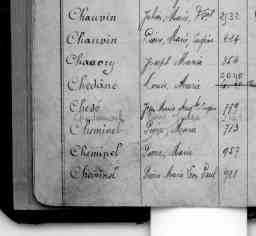 Chauvin Julien, Marie, 2532
Chauvin Pierre, Marie, Eugène 614
Chauvry Joseph Marie 364
Chedâne Louis, Marie
Chesé Jean Marie Eugène 779
Cheminel Pierre, Marie 713
Cheminel Pierre, Marie 957
Cheminel Pierre Marie Paul 921